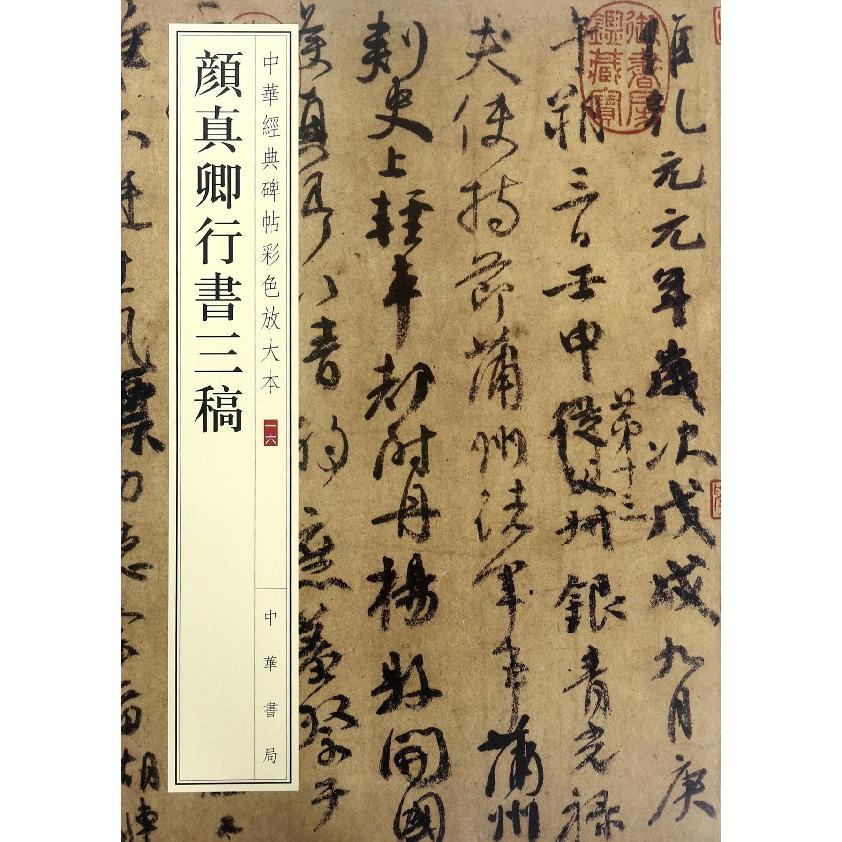 顔真卿行書三稿
中華經典碑帖彩色放大本
一六
中華書局
御書房
鑑藏寶
維乾元元年歲次戊戌九月庚
午朔三日壬申從父叔銀青光禄
第十三
夫使持節蒲州諸軍事蒲州
刺史上輕車都尉丹楊縣開國
真卿以清酌庶羞祭于